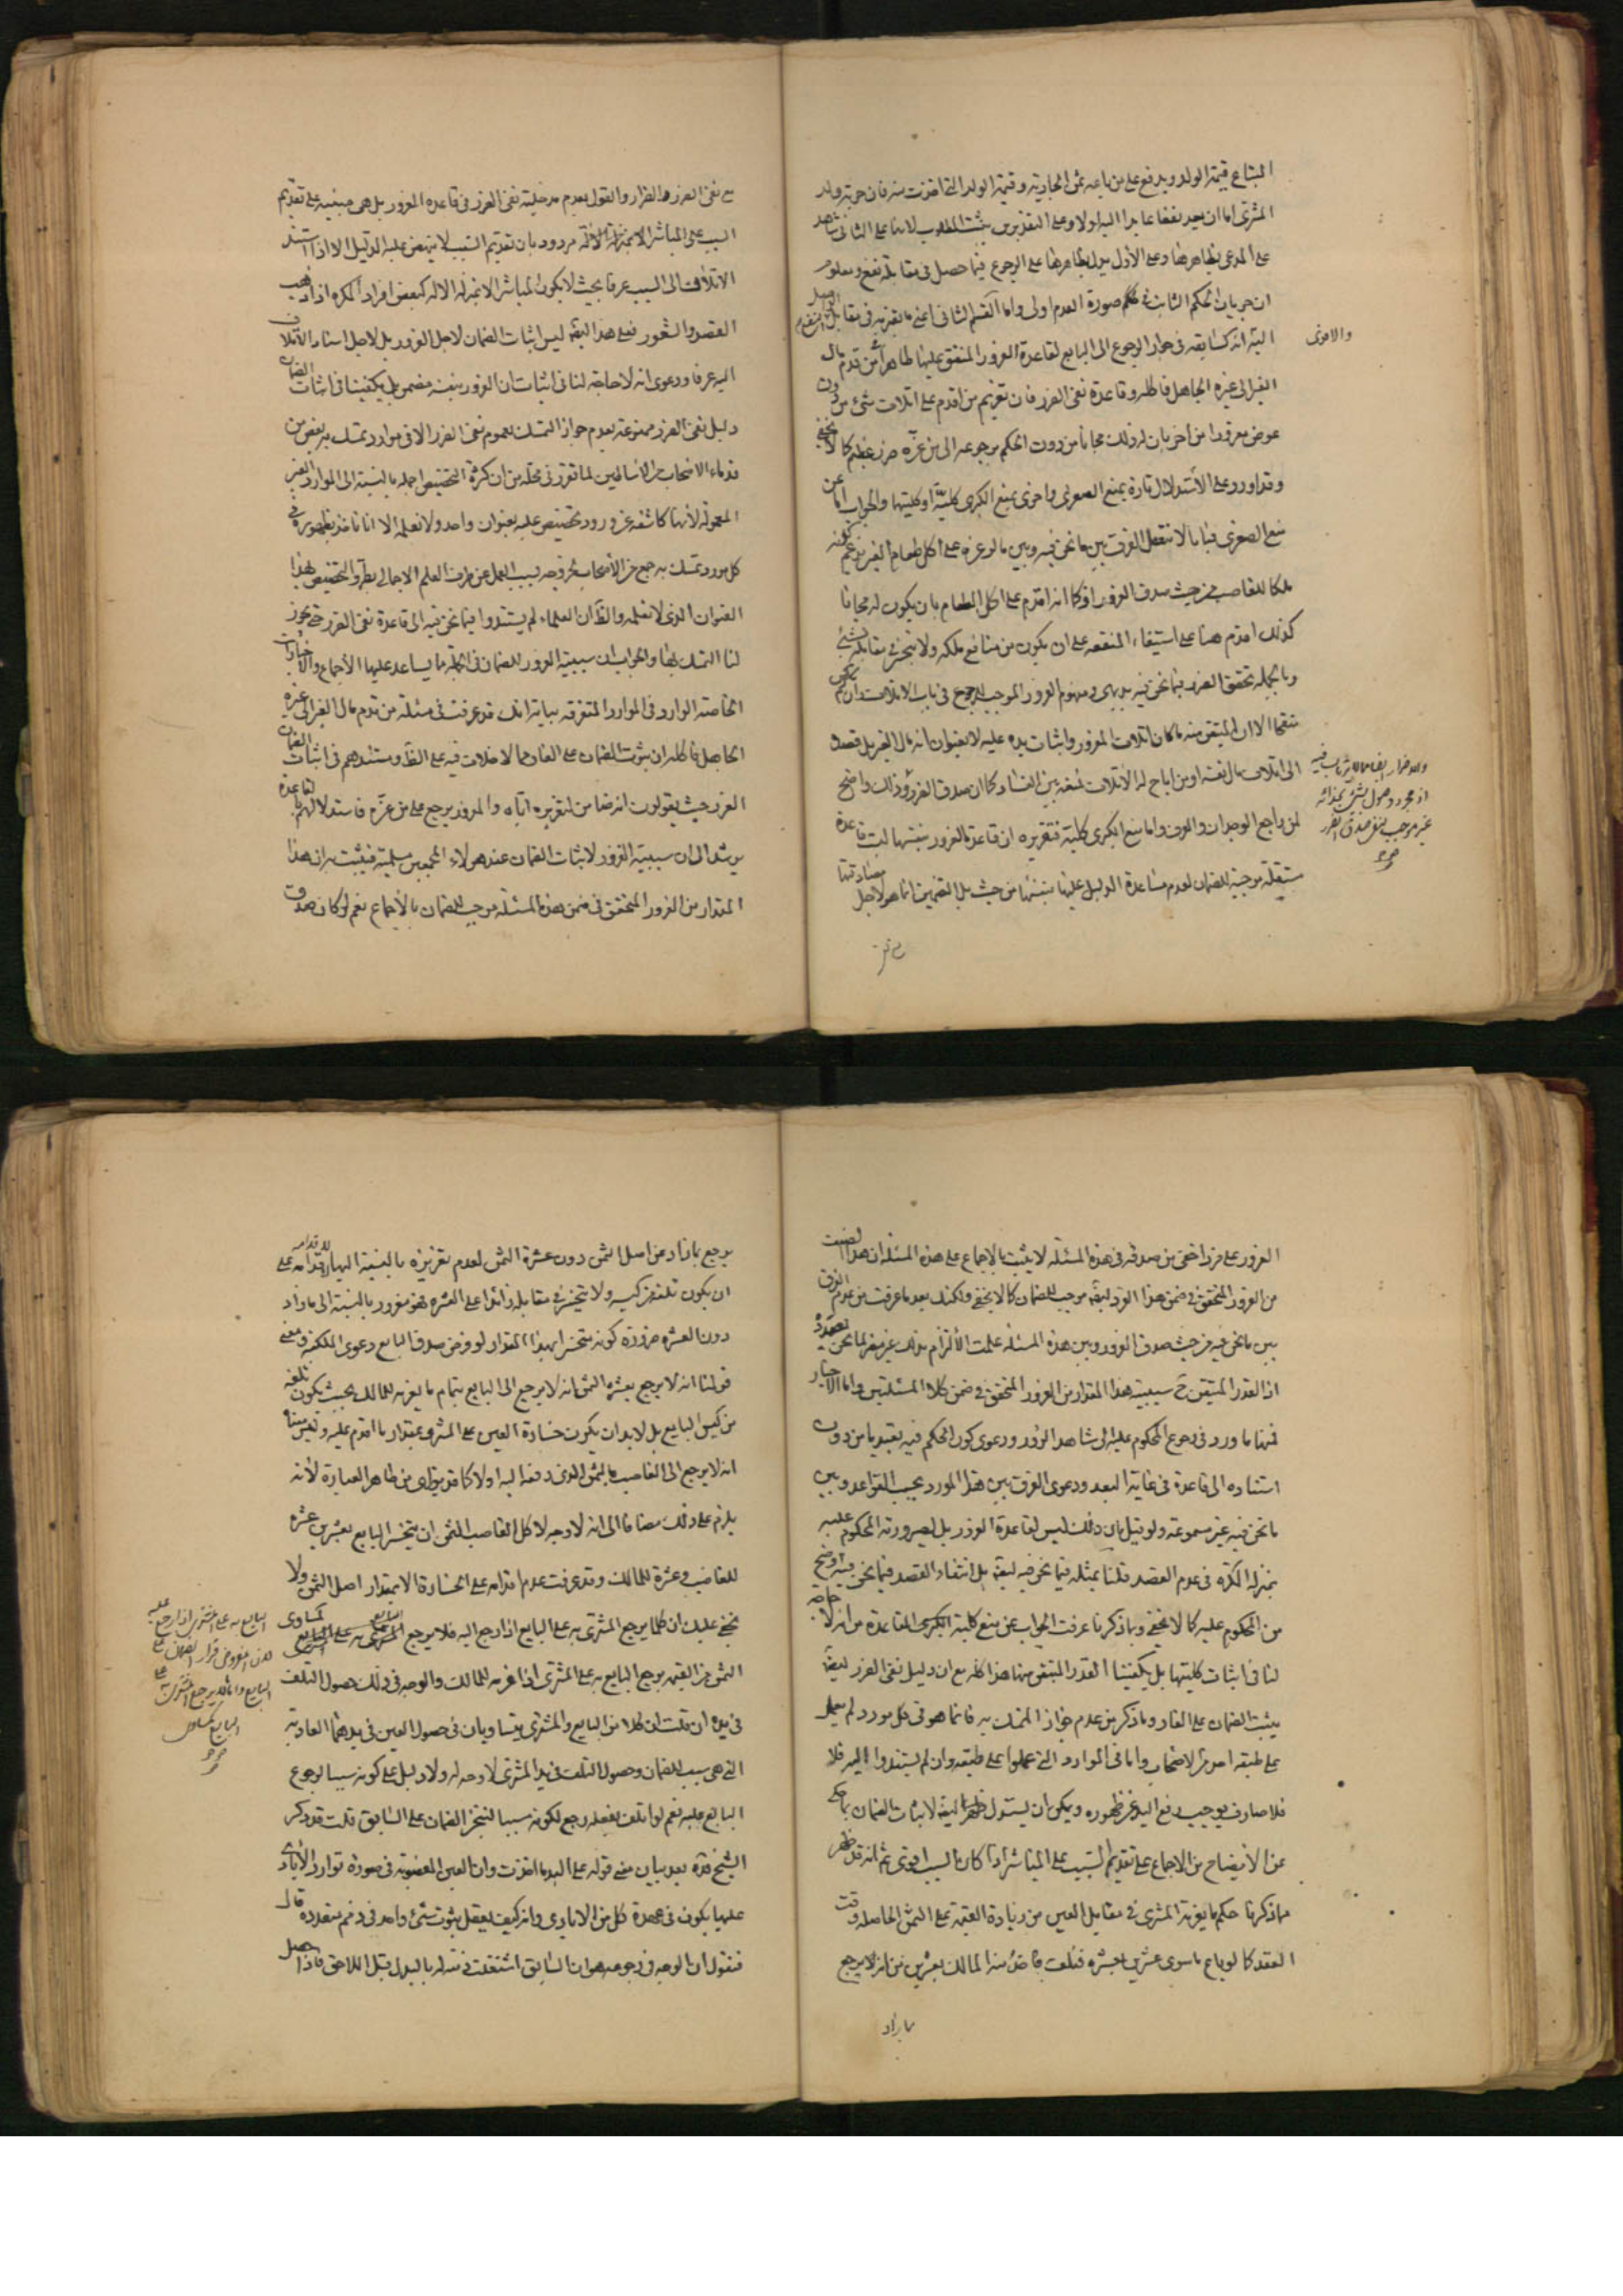 المبتاع قيمة الولد ويدفع على من باعه بثمن الجارية وقيمة الولد التي اخذت منه فان حرية ولد
المشتري اما ان يعد نفعا عايدا اليه اولا وعلى التقديرين يثبت المطلوب
على المدعى بظاهرها وعلى الأول يدل بظاهرها على الرجوع فيما حصل في مقابلته نفع ومعلوم
ان جريان الحكم الثابت في صورة العدم اولى واما القسم الثاني اعني ما يغرمه في مقابل
والاقوى
انه كسابقه في جواز الرجوع الى البايع لقاعدة الغرور المتفق عليها ظاهرا من قدم مال
الغير الى غيره الجاهل فاكله وقاعدة نفى الضرر فان تغريم من اقدم على اتلاف شيء من دون
عوض مغرورا من اخر بان له ذلك مجانا من دون الحكم برجوعه الى من غره ضرر عظيم كما لا يخفى
وقد اورد على الاستدلال تارة بمنع الصغرى واخرى بمنع الكبرى كلية او كليتها والجواب اما عن
منع الصغرى فبانا لا نتعقل الفرق بين ما نحن فيه وبين ما لو غره على اكل طعام الغير بزعم كونه
ملكا للغاصب من حيث صدق الغرور اذ كما انه اقدم على اكل الطعام بان يكون له مجانا
كذلك اقدم هنا على استيفاء المنفعة على ان يكون من منافع ملكه ولا يتخسر في مقابله بشيء
وبالجملة تحقق الغرر فيما نحن فيه بديهي ومفهوم الغرور الموجب للرجوع في باب الاتلاف وان لم يكن
منقحا الا ان المتيقن منه ما كان اتلاف المغرور واثبات يده عليه لا بعنوان انه مال الغير بل قصده
الى اتلاف مال نفسه او من اباح له الاتلاف
لمن راجع الوجدان والعرف واما منع الكبرى كلية فتقريره ان قاعدة الغرور بنفسها ليست قاعدة
مستقلة موجبة للضمان لعدم مساعدة الدليل عليها بنفسها من حيث بل التضمين انما هو لاجل مصادقتها
مع نفى الضرر والضرار والقول بعدم مدخلية نفى الضرر في قاعدة الغرور بل هي مبنية على تقديم
السبب على المباشر مردود بان تقديم السبب لا ينهض عليه الدليل الا اذا استند
الاتلاف الى السبب عرفا بحيث لا يكون المباشر الا بمنزلة الالة كبعض افراد المكره اذا ذهب
القصد والشعور فعلى هذا ليس اثبات الضمان لاجل الغرور بل لاجل اسناد الاتلاف
اليه عرفا ودعوى انه لا حاجة لنا في اثبات ان الغرور بنفسه مضمن بل يكفينا في اثبات الضمان
دليل نفى الضرر ممنوعة بعدم جواز التمسك بعموم نفى الضرر الا في موارد تمسك به بعض من
قدماء الاصحاب لما تقرر في محله من ان كثرة التخصيص اجمله بالنسبة الى الموارد الغير
المعمولة لأنها كاشفة عن ورود تخصيص عليه بعنوان واحد ولا نعلمه الا انا في
كل مورد تمسك به جمع من الأصحاب بطرو التخصيص بهذا
العنوان الذي لا نعلمه والظ ان العلماء لم يستندوا فيما نحن فيه الى قاعدة نفى الضرر حتى يجوز
لنا التمسك بها والجواب ان سببية الغرور للضمان في الجملة مما يساعد عليها الأجماع والاخبار
الخاصة الوارد في الموارد المتفرقة بيانه انك قد عرفت في مسئلة من قدم مال الغير الى غيره
الجاهل فاكله ان ثبوت الضمان على الغار مما لا خلاف فيه على الظ ومستندهم في اثبات الضمان
الغرر حيث يقولون انه ضامن لتغريره اياه والمغرور يرجع على من غره فاستدلالهم
يرشد الى ان سببية الغرور لاثبات الضمان عند هولاء المجمعين مسلمية فيثبت به ان هذا
المقدار من الغرور المتحقق في ضمن هذه المسئلة موجب للضمان بالأجماع نعم لو كان صدق
الغرور على فرد اخفى من صدقه في هذه المسئلة لا يثبت بالاجماع على هذه المسئلة ان هذا
من الغرور المتحقق في ضمن هذا الفرد ايضا موجب للضمان كما لا يخفى ولكنك بعد ما عرفت من عدم الفرق
بين ما نحن فيه من حيث صدق الغرور وبين هذه المسئلة علمت الالزام بذلك غير مضر لما نحن بصدده
اذ القدر المتيقن ح سببية هذا المقدار من الغرور المتحقق في ضمن كلا المسئلتين واما الاخبار
فمنها ما ورد في رجوع المحكوم عليه الى شاهد الزور ودعوى كون الحكم فيه تعبديا من دون
استناده الى قاعدة في غاية البعد ودعوى الفرق بين هذا المورد بحسب القواعد وبين
ما نحن فيه غير مسموعة ولو قيل بان ذلك ليس لقاعدة الغرر بل لصيرورة المحكوم عليه
بمنزلة المكره في عدم القصد قلنا بمثله فيما نحن فيه ايضا بل انتفاء القصد فيما نحن فيه اوضح
من المحكوم عليه كما لا يخفى وبما ذكرنا عرفت الجواب عن منع كلية الكبرى القاعدة من انه لا حاجة
لنا في اثبات كليتها بل يكفينا القدر المتيقن منها هذا كله مع ان دليل نفى الضرر ايضا
يثبت الضمان على الغار وما ذكر من عدم جواز التمسك به فانما هو في كل مورد لم يعمل
على طبقه احد من الاصحاب واما في الموارد التي عملوا على طبقه وان لم يستندوا اليه فلا
فلا صارف يوجب رفع اليد عن ظهوره ويمكن ان يستدل ايضا لاثبات الضمان بما حكى
عن الايضاح من الاجماع على تقديم السبب على المباشر اذا كان السبب اقوى ثم انه قد ظهر
مما ذكرنا حكم ما يغرمه المشتري في مقابل العين من زيادة القيمة على الثمن الحاصلة وقت
العقد كما لو باع ما سوى عشرين بعشرة فتلف فاخذ منه المالك بعشرين من انه لا يرجع
ما زاد
يرجع بما زاد عن اصل الثمن دون عشرة الثمن لعدم تغريره بالنسبة اليها لاقدامه على
ان يكون تلفه من كيسه ولا يتخسر في مقابله زائدا على العشرة فهو مغرور بالنسبة الى ما زاد
دون العشرة ضرورة كونه متخسرا بهذا المقدار لو فرض صدق البايع دعوى الملكية ومعنى
قولنا انه لا يرجع بعشرة الثمن انه لا يرجع الى البايع بتمام ما يغرمه للمالك بحيث يكون تلفه
من كيس البايع بل لا بد ان يكون خسارة العين على المشتري بمقدار ما اقدم عليه وليس معناه
انه لا يرجع الى الغاصب بالثمن الذي دفعه اليه اولا كما قد يترائى من ظاهر العبارة لأنه
يلزم على ذلك مضافا الى انه لا وجه لاكل الغاصب الثمن ان يتخسر البايع بعشرين عشرة
للغاصب وعشرة للمالك وقد عرفت عدم اقدامه على الخسارة الا بمقدار اصل الثمن ولا
يخفى عليك ان كلما يرجع المشتري به على البايع اذا رجع اليه فلا يرجع البايع به على المشتري
الثمن من القيمة يرجع البايع به على المشتري اذا غرمه للمالك والوجه في ذلك حصول التلف
في يده ان قلت ان كلا من البايع والمشتري يتساويان في حصول العين في يدهما العادية
التي هي سبب للضمان وحصول التلف في يد المشتري لا وجه له ولا دليل على كونه سببا لرجوع
البايع عليه نعم لو اتلف بفعله رجع لكونه سببا لتنجز الضمان على السابق قلت قد ذكر
الشيخ قده بعد بيان معنى قوله على اليد ما اخذت وان العين المغصوبة في صورة توارد الأيادي
عليها يكون في عهدة كل من الايادي وانه كيف يعقل ثبوت شيء واحد في ذمم متعددة قال
فنقول ان الوجه في رجوعه هو ان السابق اشتغلت ذمته له بالبدل قبل اللاحق فاذا حصل